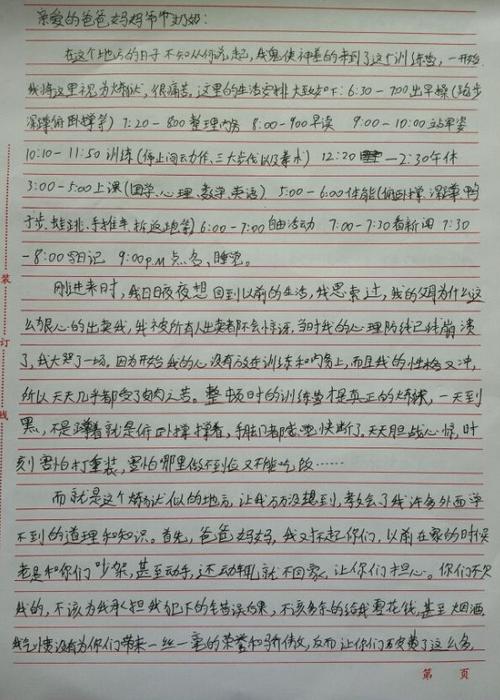 亲爱的爸爸妈妈爷爷奶奶:
在这个地方的日子不知从何说起,我鬼使神差的来到了这个训练营,一开始
我将这里视为炼狱,很痛苦,这里的生活安排大致如下:6:30-700出早操(跑步
深蹲俯卧撑等)7:20-800整理内务 8:00-900早读 9:00-10:00站军姿
10:10-11:50训练(停止间动作、三大步伐以及拳术) 12:20 -2:30午休
3:00-5:00上课(国学、心理、数学、英语) 5:00-6:00体能(俯卧撑 深蹲 鸭
子步、蛙跳、手推车、折返跑等)6:00-7:00自由活动 7:00-7:30看新闻 7:30
-8:00写日记 9:00P.M点名、睡觉。
刚进来时,我日日夜夜想回到以前的生活,我思索过,我的父母为什么这
么狠心的出卖我,我被所有人出卖都不会惊讶,当时我的心理防线已经崩溃
了,我大哭了一场。因为开始我的心没有放在训练和内务上,而且我的性格又冲,
所以天天几乎都受了肉之苦。整顿时的训练营才是真正的炼狱,一天到
黑,不是蹲着就是俯卧撑撑着,手脚都感觉快断了。天天胆战心惊,时
刻害怕打重装,害怕哪里做不到位又不能吃饭……
而就是这个炼狱似的地方,让我万万没想到,教会了我许多外面学
不到的道理和知识。首先,爸爸妈妈,我对不起你们,以前在家的时候
老是和你们吵架,甚至动手,还动不动就不回家,让你们担心。你们不欠
我的,不该为我承担我犯下的错误后果,不该多余的给我零花钱,甚至烟酒
钱没有为你们带来一丝一毫的荣誉和骄傲,反而让你们浪费了这么多,
装
订
线
第 页